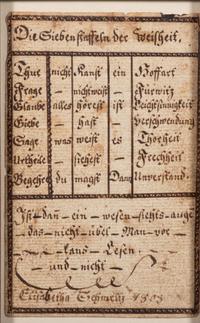 Die Siebenstaffeln der Weisheit,
Thue nicht Kanst ein Hoffart
Frage – nichtweist – Fürwitz
Glaube alles hörest ist Leichtsinnigkeit
Giebe – hast – Verschwendung
Sage was weist es Thorheit
Urtheile – siehest – Frechheit
Begehre du magst Dan Unverstand.
Ist – dañ – ein – wesen – siehts – auge
das – nicht – übel – Man – vor –
– Lesen –
– und – nicht –
Elisabetha 1803